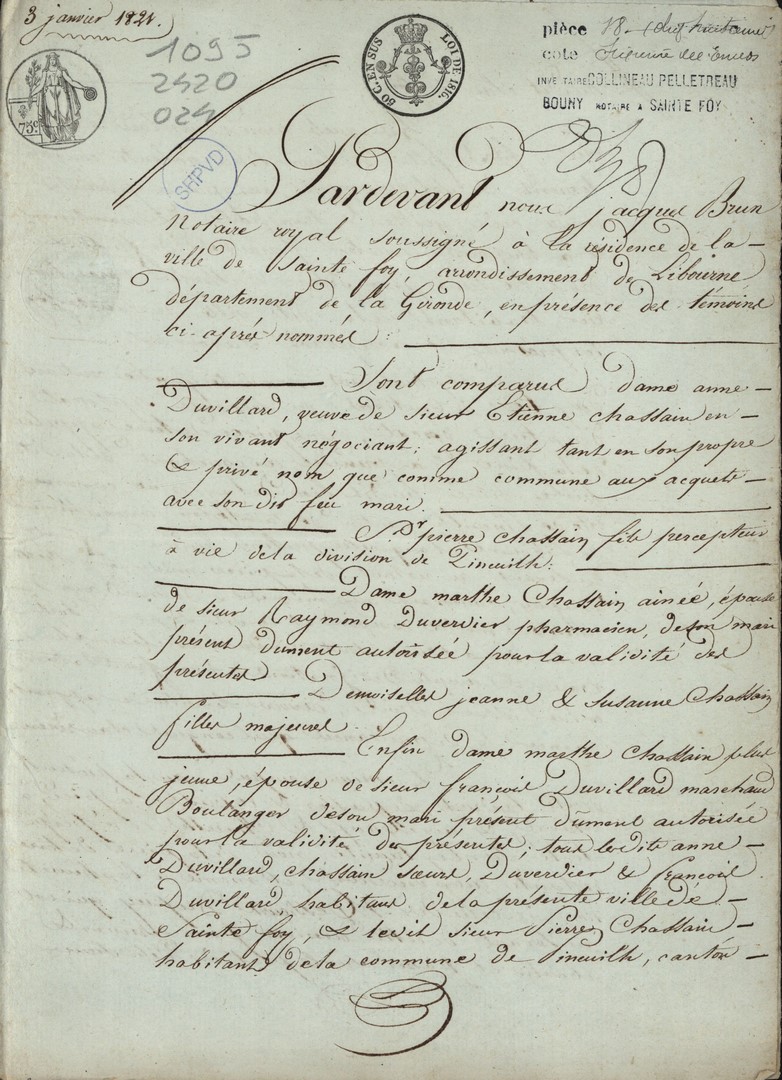 3 janvier 1821.
1095
2420
024
75c
50 C. EN SUS
LOI DE 1816.
pièce 18
cote
INVENTAIRE COLLINEAU PELLETREAU
BOUNY NOTAIRE A SAINTE FOY
SHPVD
Pardevant nous jacques Brun
Notaire royal soussigné à la résidence de la
ville de Sainte foy, arrondissement de Libourne
département de la Gironde, en présence des témoins
ci-après nommés :
Sont comparus dame anne
Duvillard, veuve de sieur Etienne Chassain en
son vivant négociant; agissant tant en son propre
& privé nom que comme commune aux acquets
avec son dit feu mari.
Sr pierre Chassain fils percepteur
à vie de la division de Pineuilh :
Dame marthe Chassain ainée, épouse
de sieur Raymond Duvervier pharmacien, de son mari
présent dument autorisée pour la validité des
présentes
Demoiselles jeanne & susanne Chassain
filles majeures.
Enfin dame marthe Chassain plus
jeune, épouse de sieur françois Duvillard marchand
Boulanger de son mari présent dûment autorisée
pour la validité des présentes; tous lesdits anne
Duvillard, chassain sœurs, Duvervier & françois
Duvillard habitans de la présente ville de
Sainte foy, & ledit sieur Pierre Chassain
habitant de la commune de Pineuilh, canton